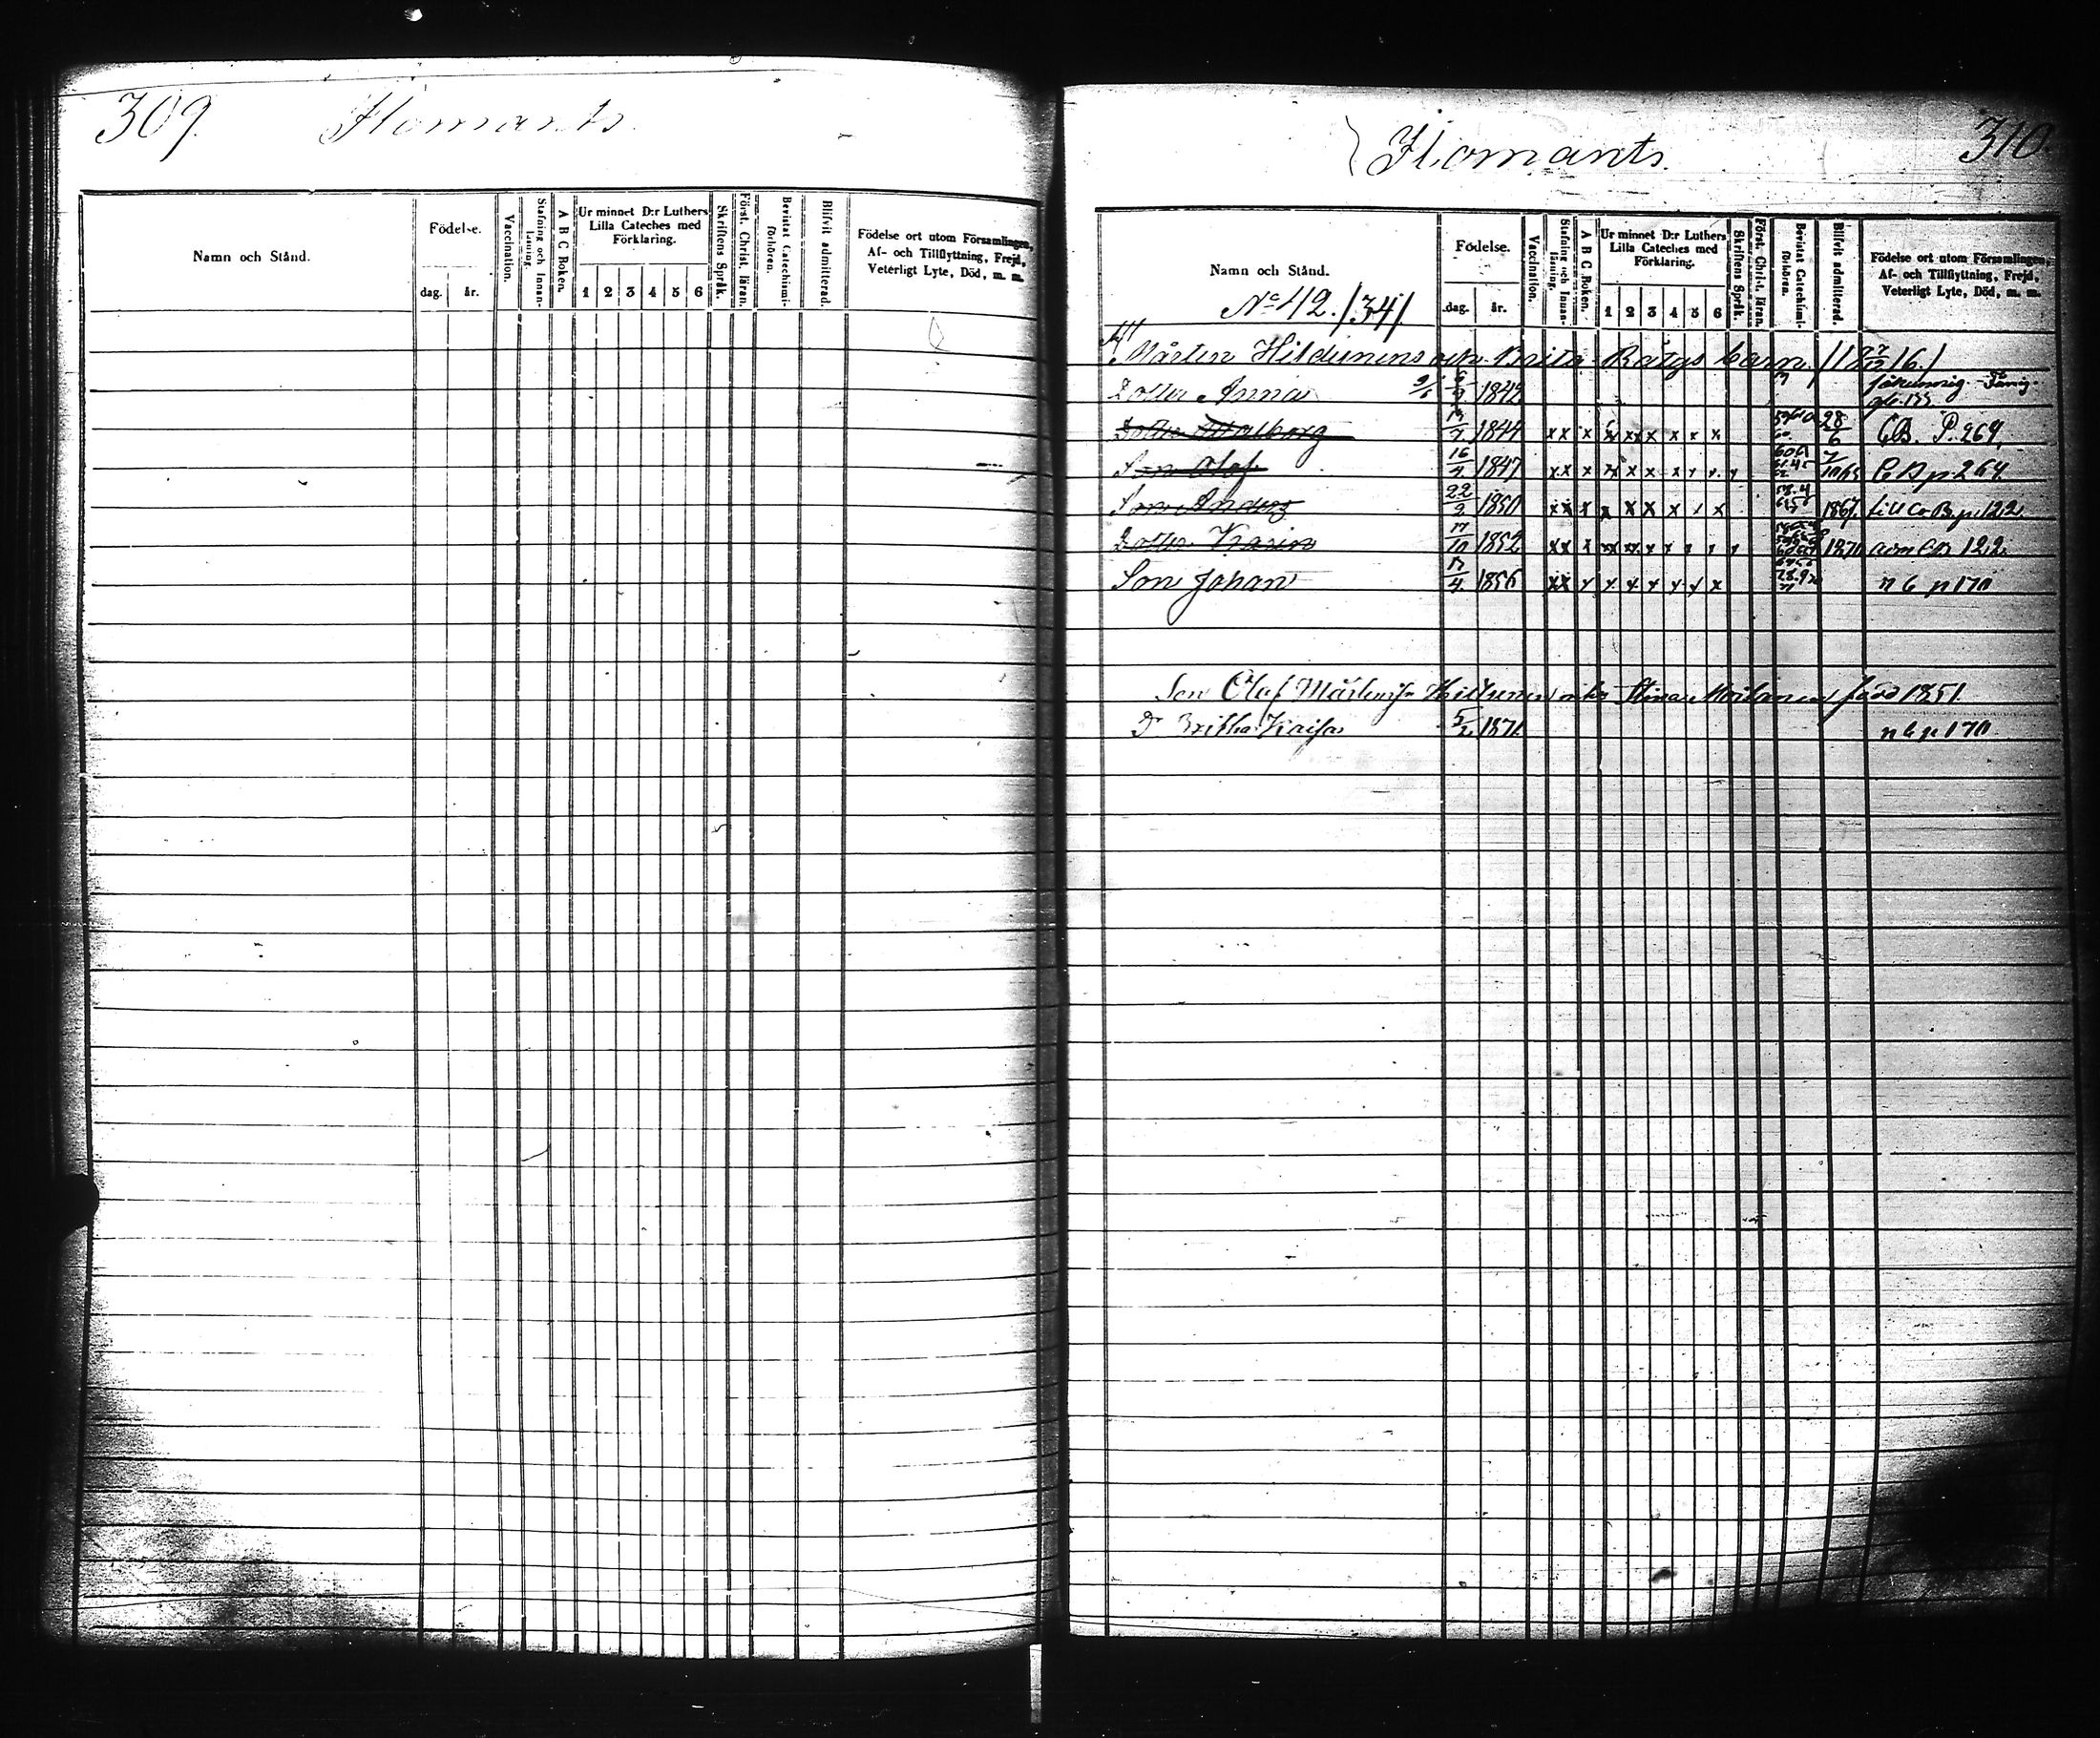 309.
Ilomants.
Namn och Stånd.
Födelse.
dag.
år.
Vaccination.
Stafning och Innan-
läsning.
A B C Boken.
Ur minnet D:r Luthers
Lilla Cateches med
Förklaring.
1 2 3 4 5 6
Skriftens Språk.
Först. Christ. läran.
Bevistat Catechismi-
förhören.
Blifvit admitterad.
Födelse ort utom Församlingen,
Af- och Tillflyttning, Frejd,
Veterligt Lyte, Död, m. m.
Ilomants.
310.
Namn och Stånd.
No 42. /34/
Födelse.
dag.
år.
Vaccination.
Stafning och Innan-
läsning.
A B C Boken.
Ur minnet D:r Luthers
Lilla Cateches med
Förklaring.
1 2 3 4 5 6
Skriftens Språk.
Först. Christ. läran.
Bevistat Catechismi-
förhören.
Blifvit admitterad.
Födelse ort utom Församlingen,
Af- och Tillflyttning, Frejd,
Veterligt Lyte, Död, m. m.
Mårten Hildunens och Brita barn
Dotter Anna 1842
Dotter Walborg 1844 x x x x xx x x x x 28/6 CB. P. 264.
Son Olof 16/4 1847 x x x x x x x x x C B p 264
Son Anders 22/2 1850 x x x x x x x x x 1867. till Co B. p. 122
Dotter Karin 17/10 1852 x x x xx xx x x x x 1870 122
Son Johan 17/4 1856 x x x x x x x x x n b p 170
Son Olof Mårtensson Hiltunen född 1851
Dr Britha Kaisa 5/2 1871. n b p 170